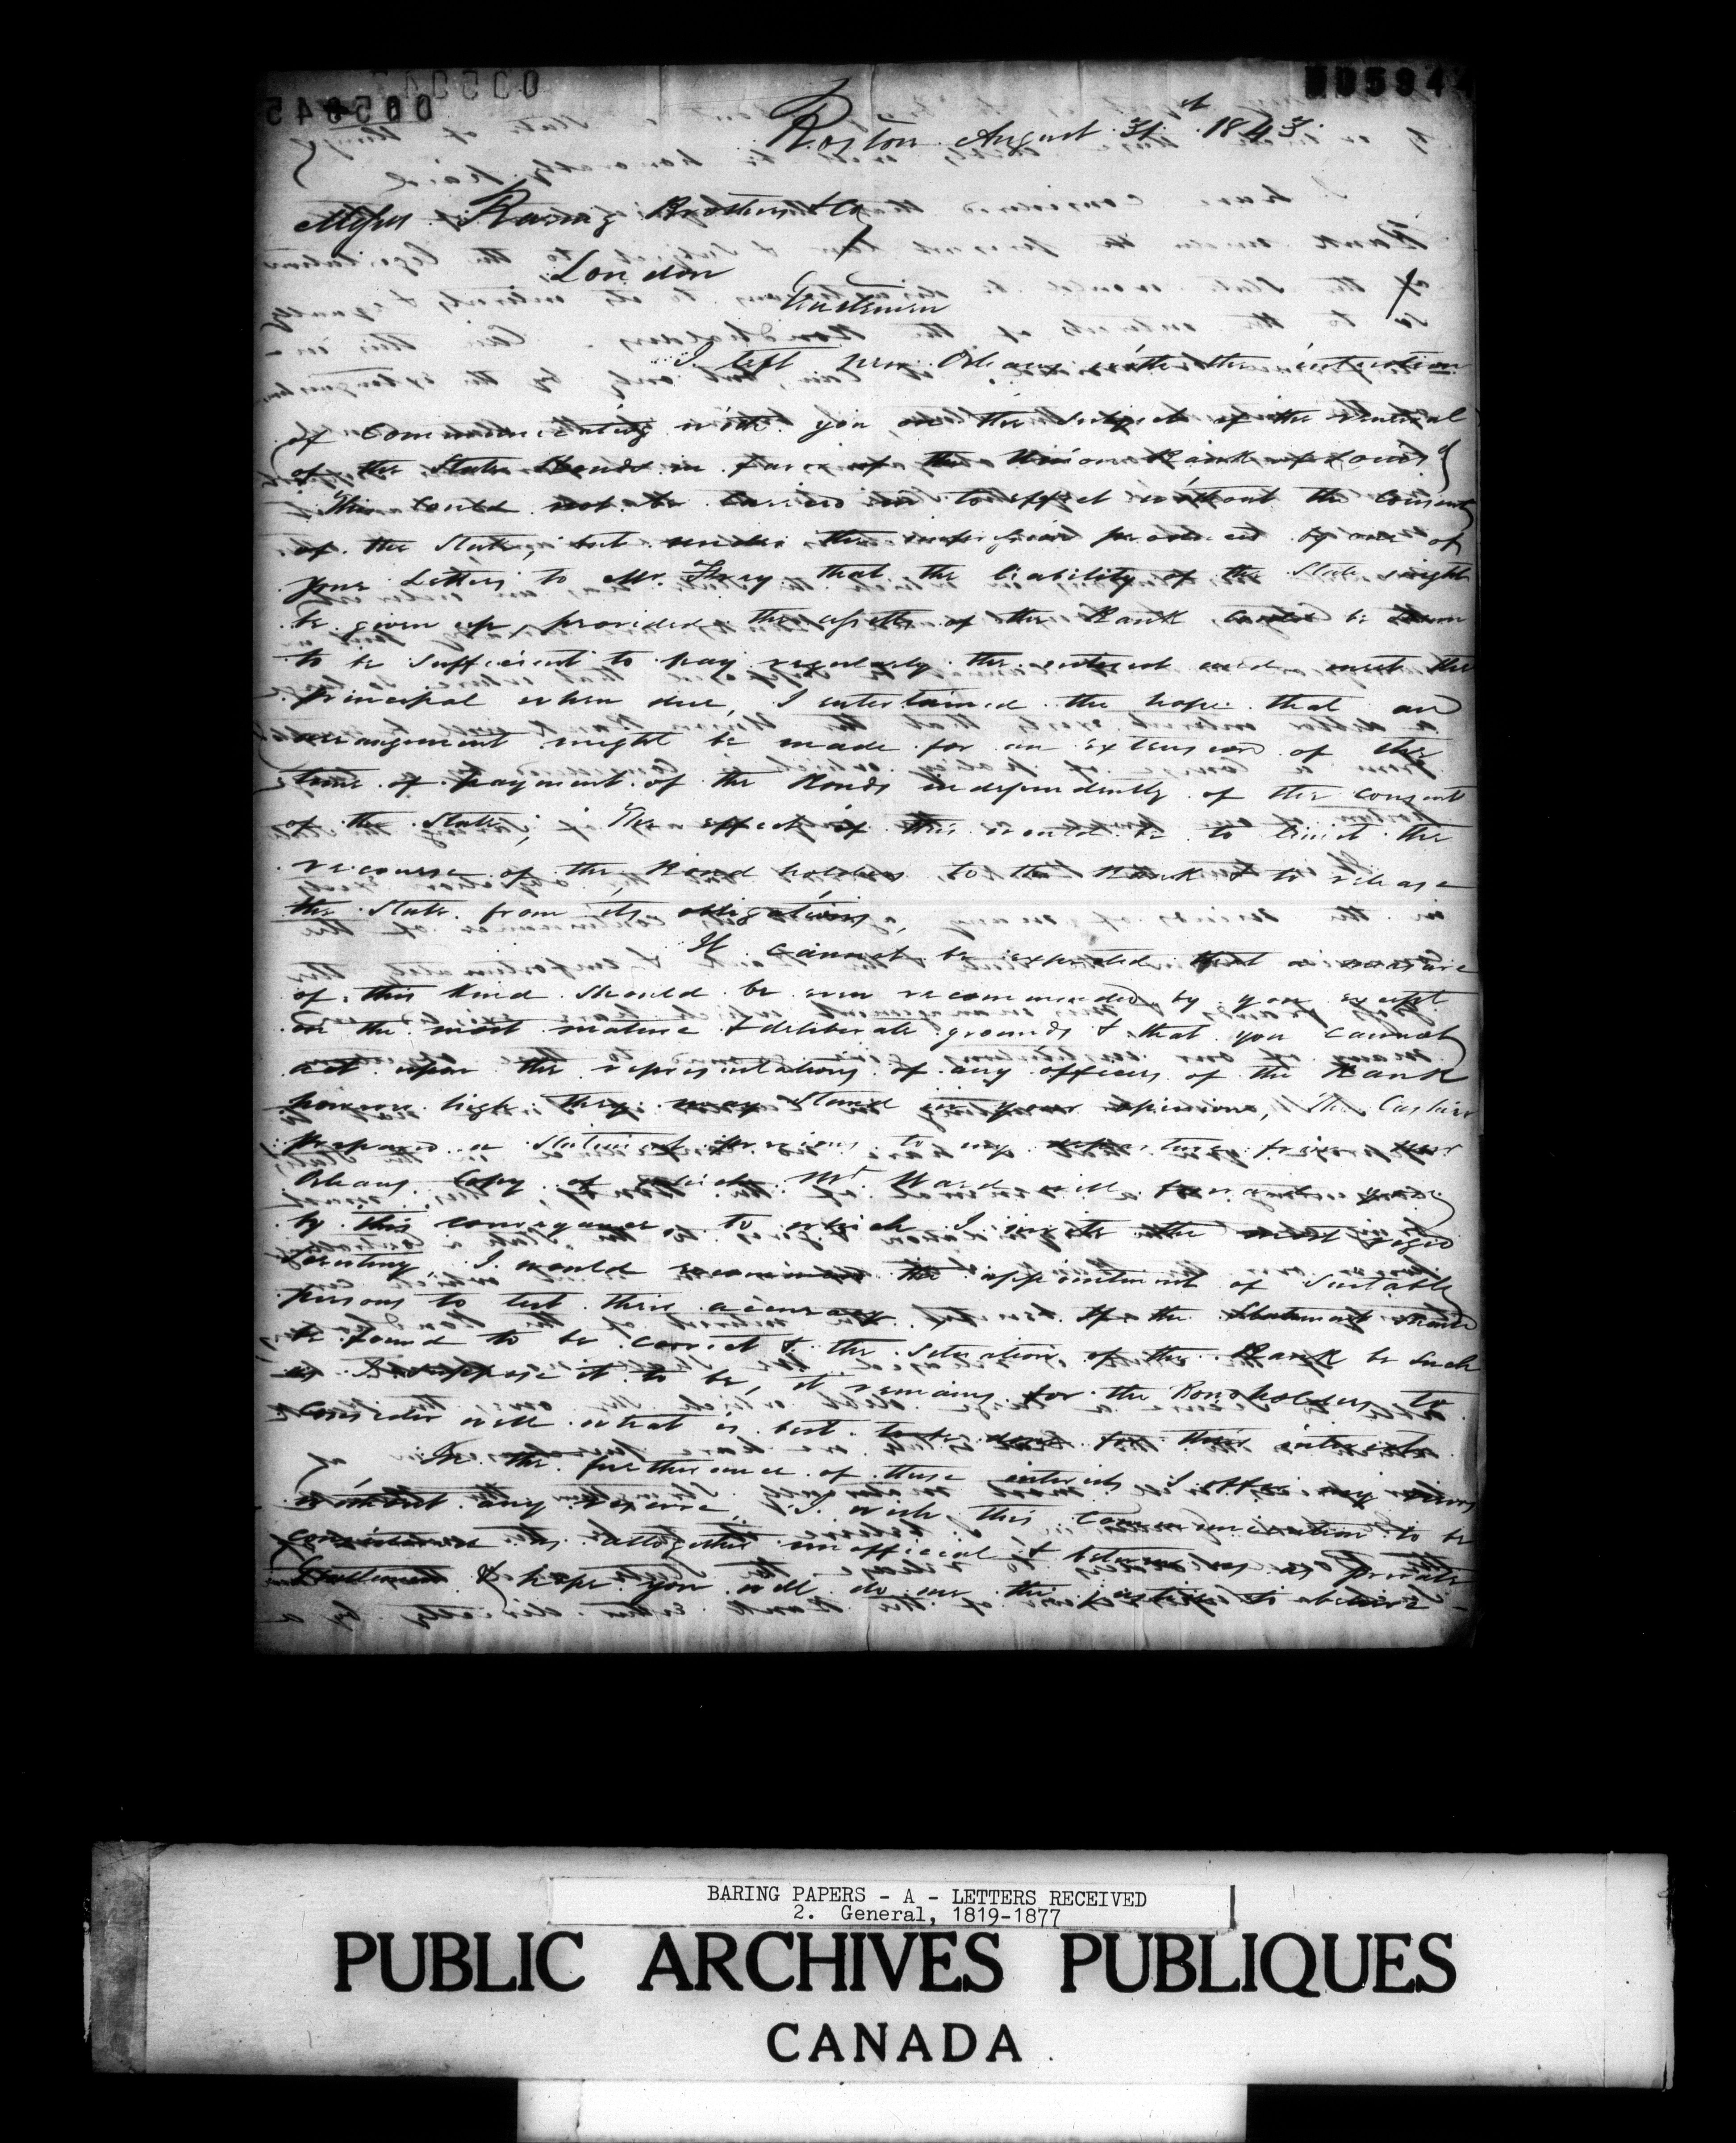 005944
Boston August 31st 1843.
Messrs Baring Brothers & Co
London
Gentlemen
I left New Orleans with the intention
of communicating with you on the subject of the renewal
of the State Bonds in favor of the Union Bank of Louis
This could not be carried in to effect without the consent
of the State, but under the impression produced by one of
your Letters to Mr. that the liability of the State might
be given up, provided the assetts of the Bank could be shown
to be sufficient to pay regularly the interest and meet the
principal when due, I entertained the hope that an
arrangement might be made for an extension of the
time of payment of the Bonds independently of the consent
of the State; The effect of this would be to limit the
recourse of the Bond holders to the Bank & to release
the State from its obligations,
It cannot be expected that a measure
of this kind should be even recommended by you except
on the most mature & deliberate grounds & that you cannot
act upon the representations of any officers of the Bank
however high they may stand in your opinions, The Cashier
prepared a statement previous to my departure from New
Orleans Copy of which Mr. Ward will forward you
by this conveyance, to which I invite the most rigid
scrutiny, I would recommend the appointment of suitable
persons to test their accuracy. If the Statement should
be found to be correct & the situation of the Bank be such
as I suppose it to be, it remains for the Bondholders to
consider well what is best to be done for their interests
In the furtherance of these interests I offer my services
without any reserve, I wish this communication to be
considered as altogether unofficial & between us as private
Gentlemen & I hope you will do me the justice to believe
BARING PAPERS - A - LETTERS RECEIVED
2. General, 1819-1877
PUBLIC ARCHIVES PUBLIQUES
CANADA